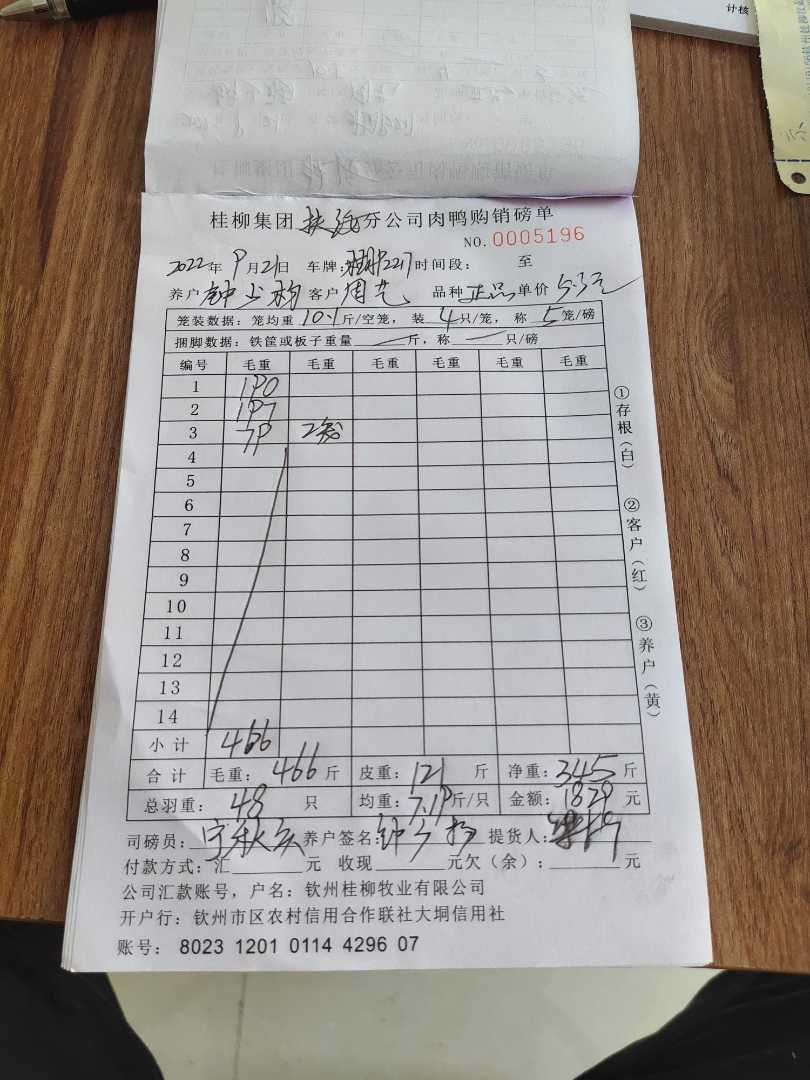 桂柳集团 扶绥 分公司肉鸭购销磅单
NO. 0005196
2022年 9月21日 车牌: 2217 时间段: 至
养户 钟 客户 周 品种 正品 单价 5.3元
笼装数据: 笼均重 10.1 斤/空笼, 装 4 只/笼, 称 5 笼/磅
捆脚数据: 铁筐或板子重量 斤, 称 只/磅
编号 毛重 毛重 毛重 毛重 毛重 毛重
1 190
2 197
3 79 2笼
4
5
6
7
8
9
10
11
12
13
14
小计 466
合计 毛重: 466 斤 皮重: 121 斤 净重: 345 斤
总羽重: 48 只 均重: 7.19 斤/只 金额: 1829 元
司磅员: 宁秋 养户签名: 钟 提货人:
付款方式: 汇 元 收现 元欠(余): 元
公司汇款账号, 户名: 钦州桂柳牧业有限公司
开户行: 钦州市区农村信用合作联社大垌信用社
账号: 8023 1201 0114 4296 07
①存根(白)
②客户(红)
③养户(黄)
计核